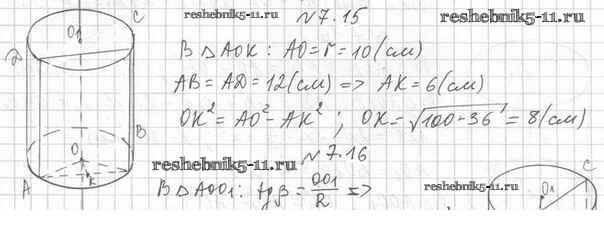 reshebnik5-11.ru
№7.15
reshebnik5-11.ru
В ∆ AOK : AO = r = 10 (см)
AB = AD = 12 (см) => AK = 6 (см)
OK² = AO² - AK² ; OK = √100-36 = 8 (см)
№7.16
reshebnik5-11.ru
В ∆ AOO1 : tgβ = OO1/R =>
reshebnik5-11.ru
C
O1
D
B
O
K
A
C
O1